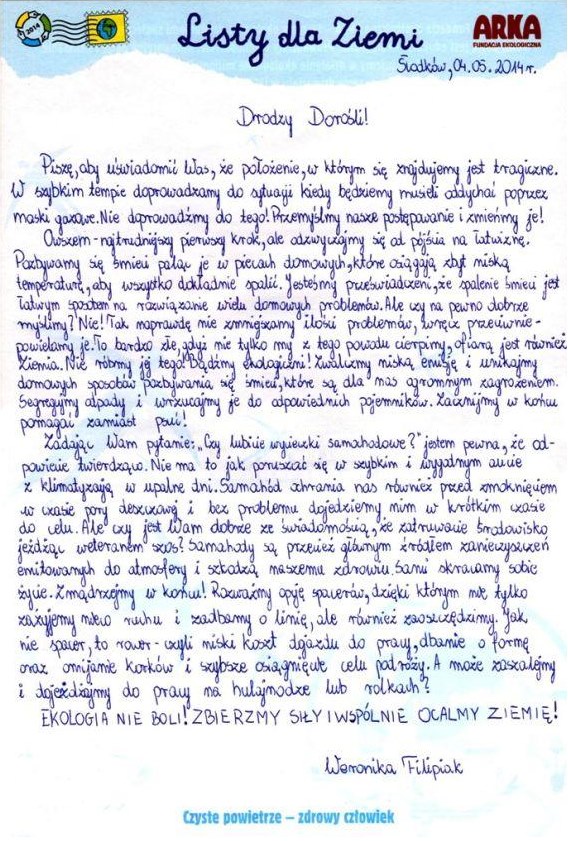 2014
Listy dla Ziemi
ARKA
FUNDACJA EKOLOGICZNA
Siodków, 04.05.2014r.
Drodzy Dorośli!
Piszę, aby uświadomić Was, że położenie, w którym się znajdujemy jest tragiczne.
W szybkim tempie doprowadzamy do sytuacji kiedy będziemy musieli oddychać poprzez
maski gazowe. Nie doprowadźmy do tego! Przemyślmy nasze postępowanie i zmieńmy je!
Owszem - najtrudniejszy pierwszy krok, ale odzwyczajmy się od pójścia na łatwiznę.
Pozbywamy się śmieci paląc je w piecach domowych, które osiągają zbyt niską
temperaturę, aby wszystko dokładnie spalić. Jesteśmy przeświadczeni, że spalenie śmieci jest
łatwym sposobem na rozwiązanie wielu domowych problemów. Ale czy na pewno dobrze
myślimy? Nie! Tak naprawdę nie zmniejszamy ilości problemów, wręcz przeciwnie -
powielamy je. To bardzo źle, gdyż nie tylko my z tego powodu cierpimy, ofiarą jest również
Ziemia. Nie róbmy jej tego! Bądźmy ekologiczni! Zwalczmy niską emisję i unikajmy
domowych sposobów pozbywania się śmieci, które są dla nas ogromnym zagrożeniem.
Segregujmy odpady i wrzucajmy je do odpowiednich pojemników. Zacznijmy w końcu
pomagać zamiast psuć!
Zadając Wam pytanie: „Czy lubicie wycieczki samochodowe?" jestem pewna, że od-
powiecie twierdząco. Nie ma to jak poruszać się w szybkim i wygodnym aucie
z klimatyzacją w upalne dni. Samochód ochrania nas również przed zmoknięciem
w czasie pory deszczowej i bez problemu dojedziemy nim w krótkim czasie
do celu. Ale czy jest Wam dobrze ze świadomością, że zatruwacie środowisko
jeżdżąc weteranem szos? Samochody są przecież głównym źródłem zanieczyszczeń
emitowanych do atmosfery i szkodzą naszemu zdrowiu. Sami skracamy sobie
życie. Zmądrzejmy w końcu! Rozważmy opcję spacerów, dzięki którym nie tylko
zażyjemy nieco ruchu i zadbamy o linię, ale również zaoszczędzimy. Jak
nie spacer, to rower - czyli niski koszt dojazdu do pracy, dbanie o formę
oraz omijanie korków i szybsze osiągnięcie celu podróży. A może zaszalejmy
i dojeżdżajmy do pracy na hulajnodze lub rolkach?
EKOLOGIA NIE BOLI! ZBIERZMY SIŁY I WSPÓLNIE OCALMY ZIEMIĘ!
Weronika Filipiak
Czyste powietrze – zdrowy człowiek